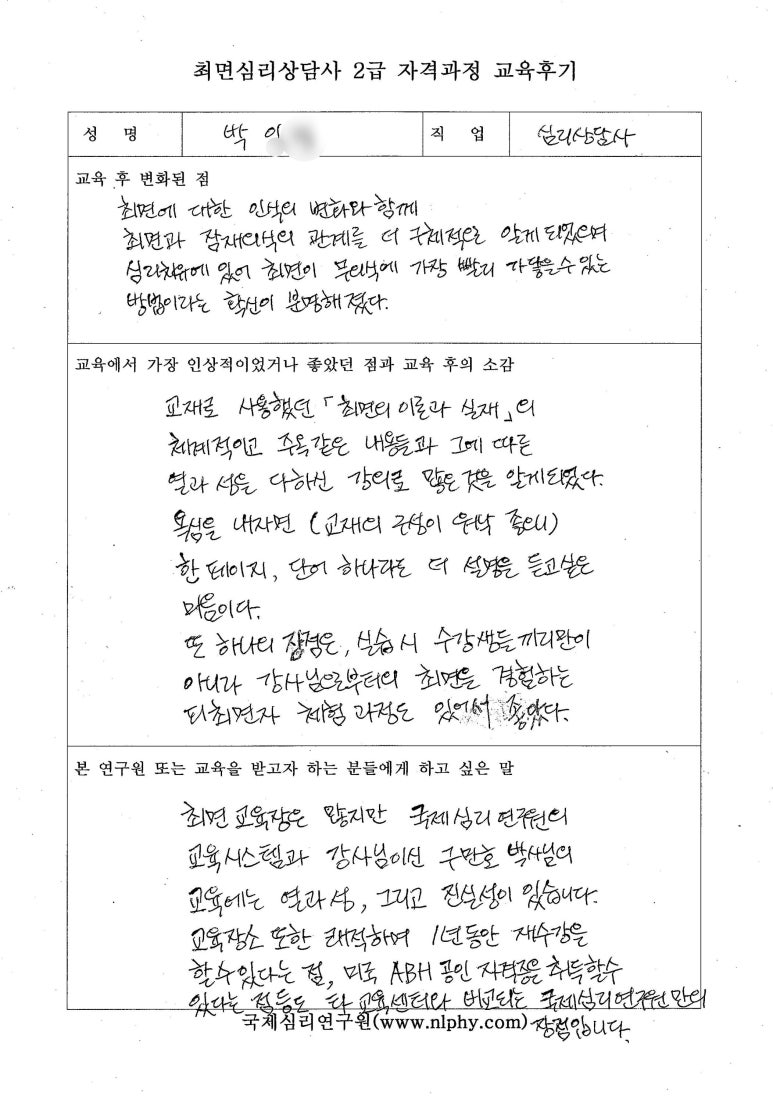 최면심리상담사 2급 자격과정 교육후기
성 명 박 이 직 업 심리상담사
교육 후 변화된 점
최면에 대한 인식의 변화와 함께
최면과 잠재의식의 관계를 더 구체적으로 알게 되었으며
심리치유에 있어 최면이 무의식에 가장 빨리 가닿을 수 있는
방법이라는 확신이 분명해졌다.
교육에서 가장 인상적이었거나 좋았던 점과 교육 후의 소감
교재로 사용했던 「최면의 이론과 실재」의
체계적이고 주옥같은 내용들과 그에 따른
열과 성을 다하신 강의로 많은 것을 알게되었다.
욕심을 내자면 (교재의 구성이 워낙 좋으니)
한 페이지, 단어 하나라도 더 설명을 듣고싶은
마음이다.
또 하나의 장점은, 실습 시 수강생들끼리만이
아니라 강사님으로부터의 최면을 경험하는
피최면자 체험 과정도 있어서 좋았다.
본 연구원 또는 교육을 받고자 하는 분들에게 하고 싶은 말
최면 교육장은 많지만 국제심리연구원의
교육시스템과 강사님이신 구만호 박사님의
교육에는 열과 성, 그리고 진실성이 있습니다.
교육장소 또한 쾌적하며 1년동안 재수강을
할 수 있다는 점, 미국 ABH 공인 자격증을 취득할 수
있다는 점등도 타 교육센터와 비교되는 국제심리연구원만의
장점입니다.
국제심리연구원(www.nlphy.com)